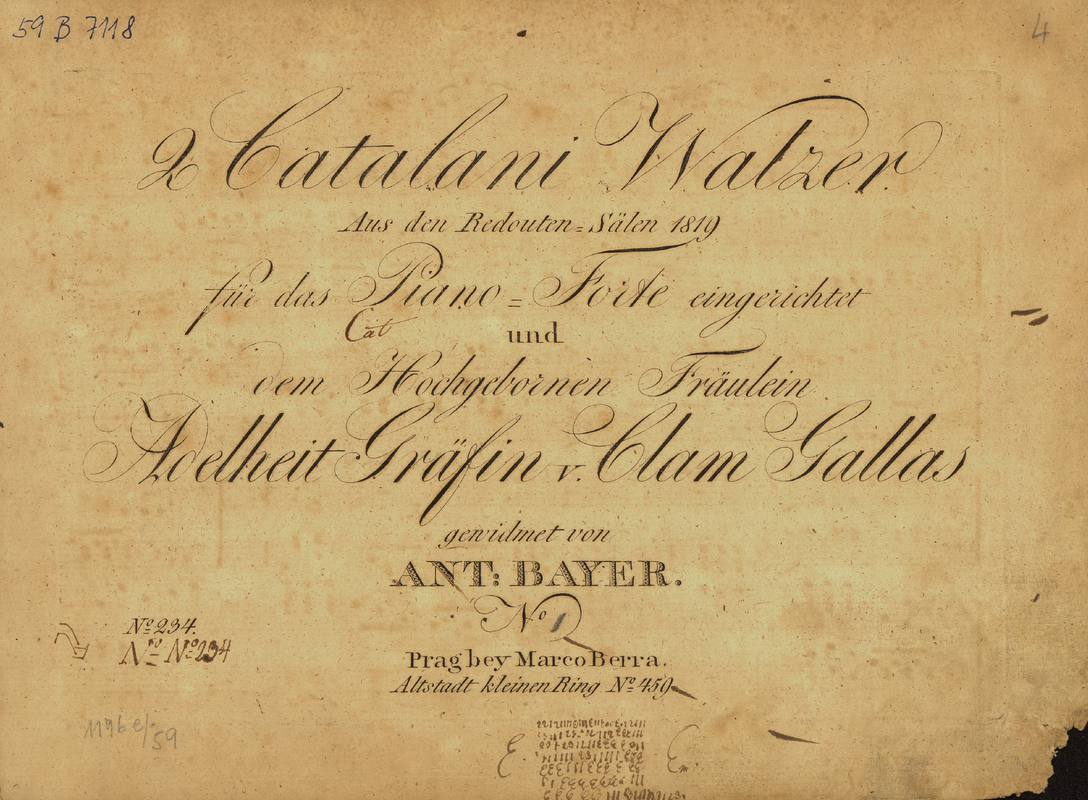 59 B 7118
4
2 Catalani Walzer
Aus den Redouten=Sälen 1819
für das Piano=Forte eingerichtet
Cat
und
dem Hochgebornen Fräulein
Adelheit Gräfin v. Clam Gallas
gewidmet von
ANT: BAYER.
No 1
No 234.
No No 234
Prag bey Marco Berra.
Altstadt kleinen Ring No 459
1196 e/59